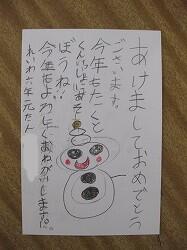 あけましておめでとう
ございます。
今年もたくと
くんいっしょにあそ
ぼうね!!
今年もよろしくおねがいします。
れいわ六年元たん